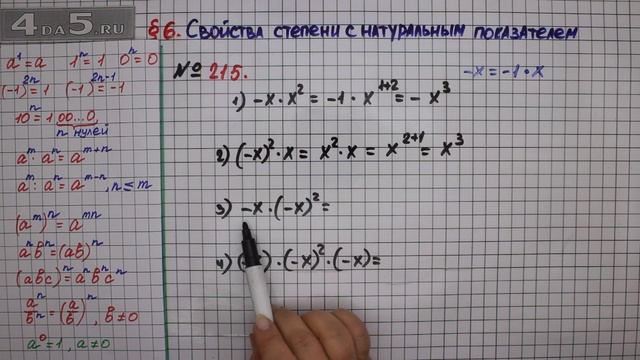 4DA5.RU
§6. Свойства степени с натуральным показателем
a¹ = a   1ⁿ = 1   0ⁿ = 0
(-1)²ⁿ = 1   (-1)²ⁿ⁻¹ = -1
10ⁿ = 1 00...0,
n нулей
aᵐ · aⁿ = aᵐ⁺ⁿ
aᵐ : aⁿ = aᵐ⁻ⁿ, n ≤ m
(aᵐ)ⁿ = aᵐⁿ
aⁿbⁿ = (ab)ⁿ
(abc)ⁿ = aⁿbⁿcⁿ
aⁿ/bⁿ = (a/b)ⁿ, b ≠ 0
a⁰ = 1, a ≠ 0
№ 215.
-x = -1 · x
1) -x · x² = -1 · x¹⁺² = - x³
2) (-x)² · x = x² · x = x²⁺¹ = x³
3) -x · (-x)² =
4) (-x) · (-x)² · (-x) =